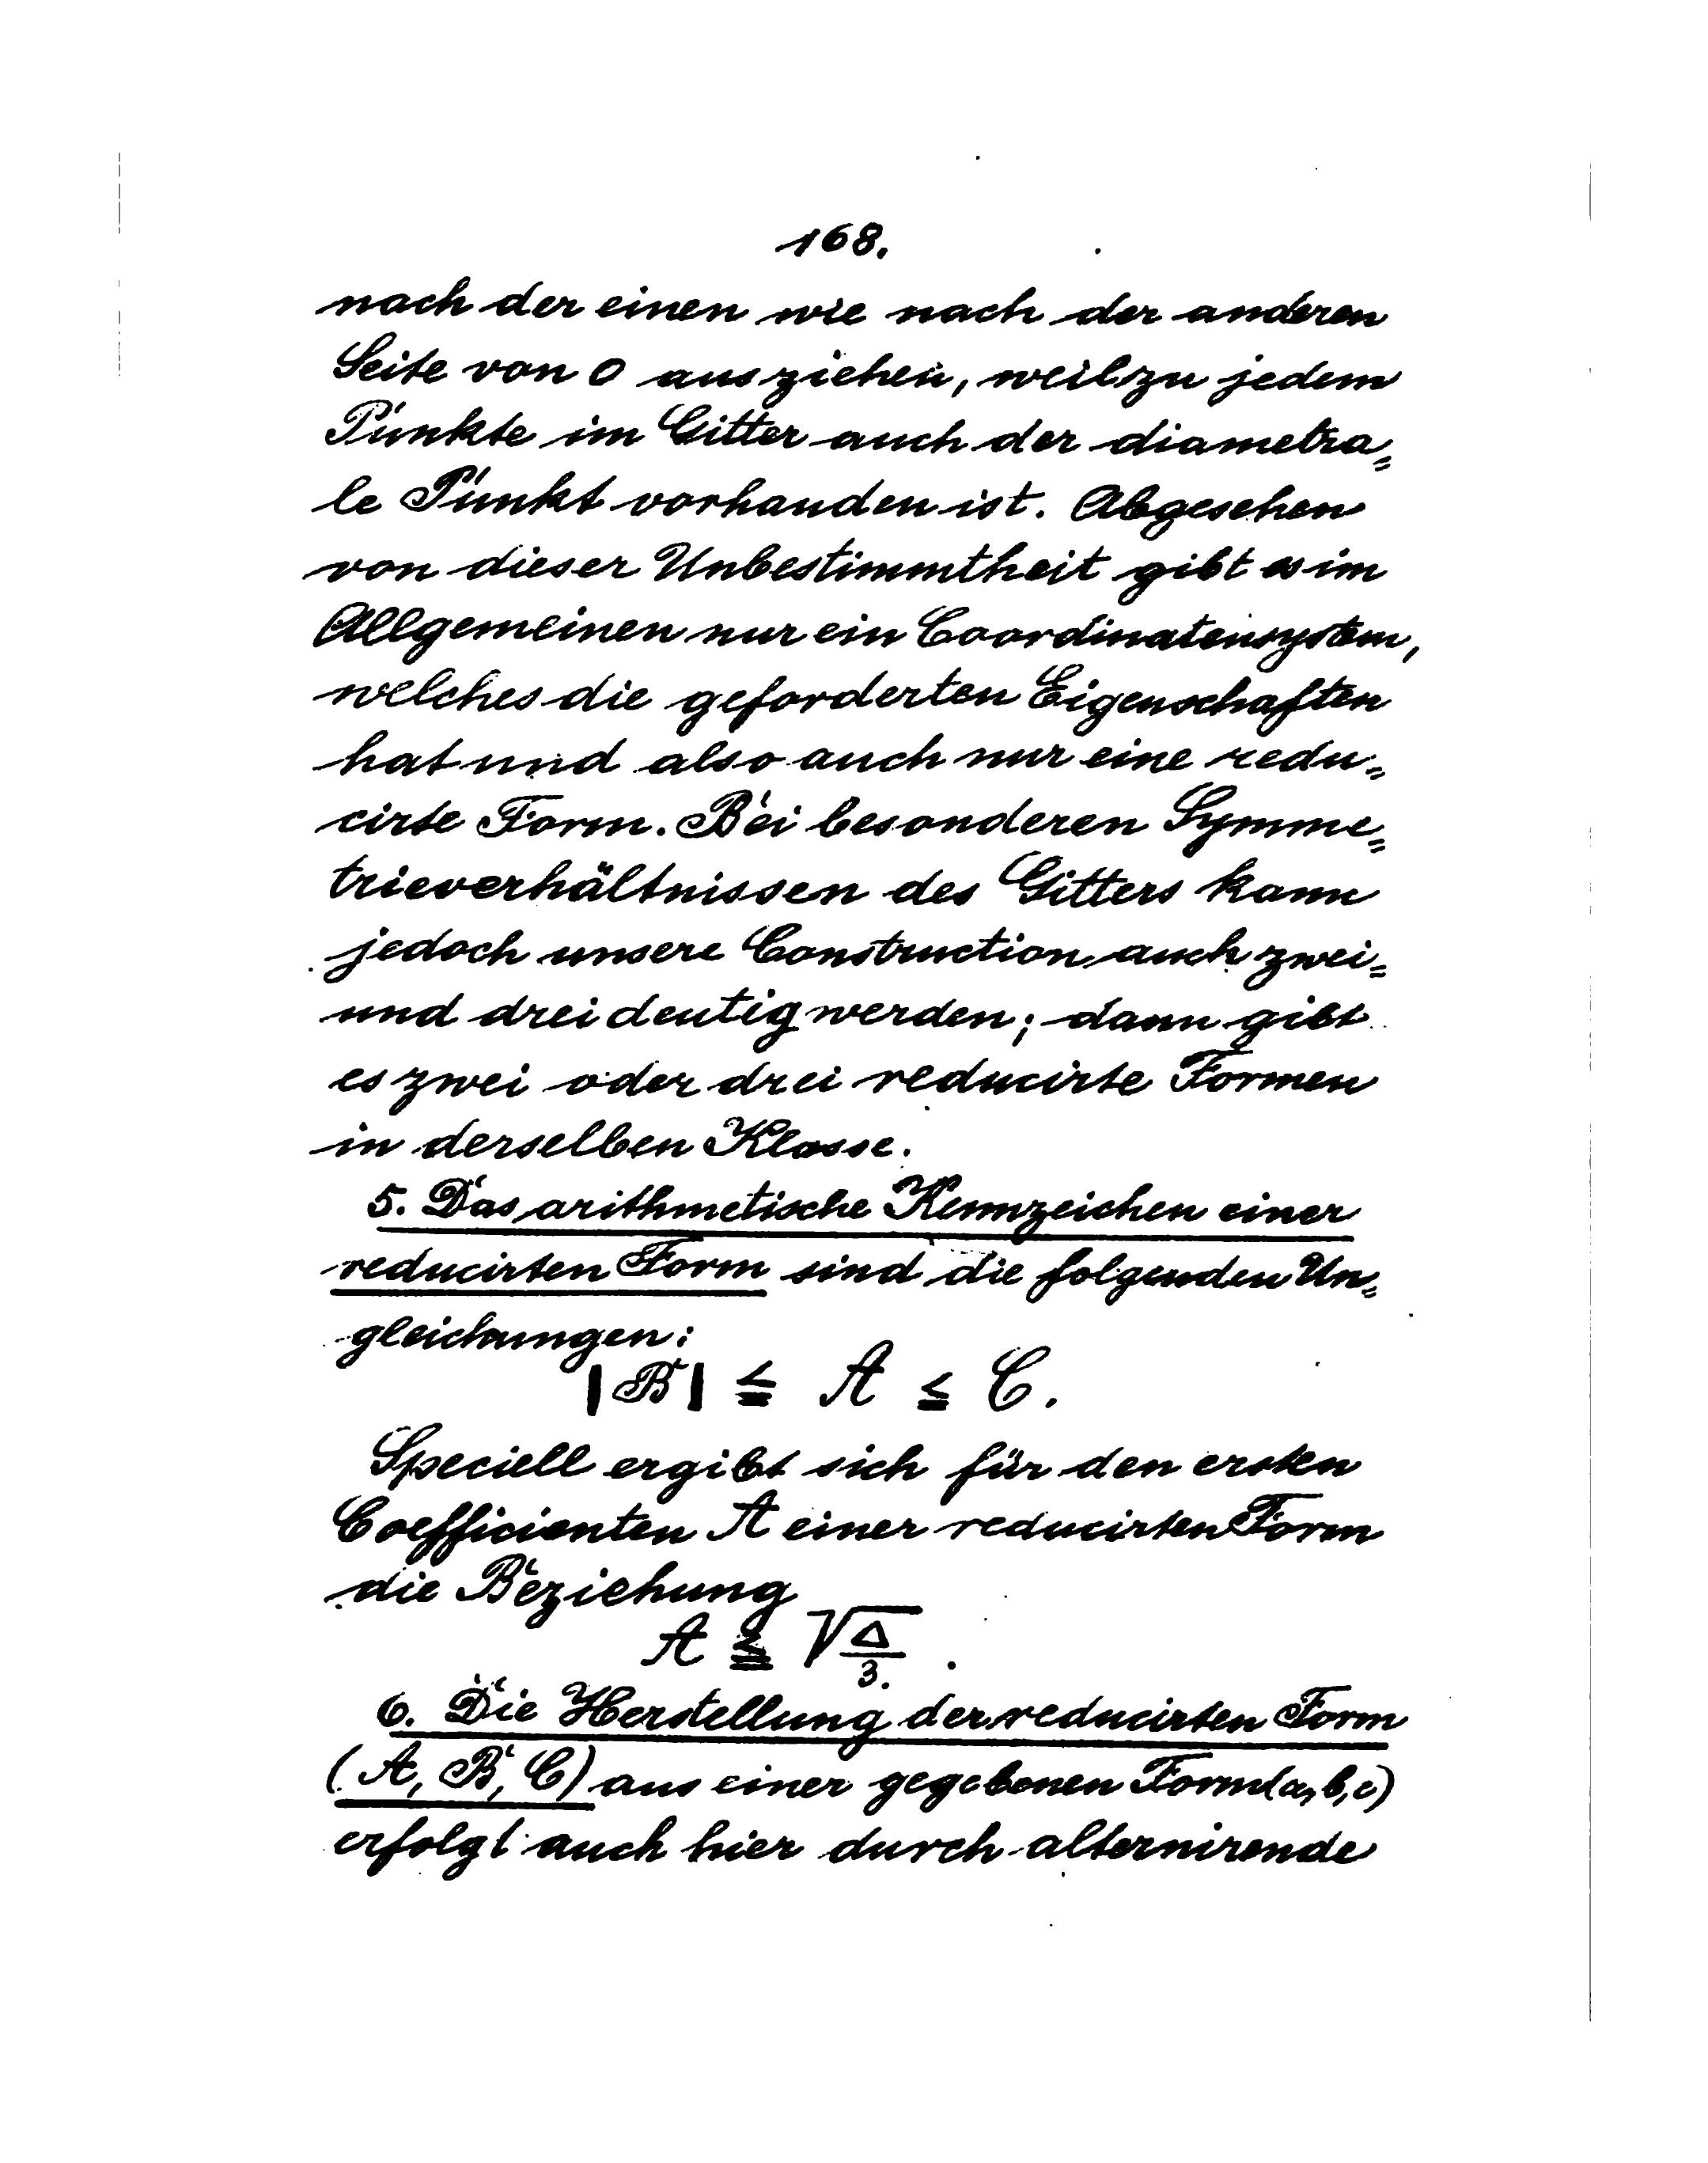 168.
nach der einen wie nach der anderen
Seite von O ausziehen, weil zu jedem
Punkte im Gitter auch der diametra=
le Punkt vorhanden ist. Abgesehen
von dieser Unbestimmtheit gibt es im
Allgemeinen nur ein Coordinatensystem,
welches die geforderten Eigenschaften
hat und also auch nur eine redu=
cirte Form. Bei besonderen Symme=
trieverhältnissen des Gitters kann
jedoch unsere Construction auch zwei=
und dreideutig werden; dann gibt
es zwei oder drei reducirte Formen
in derselben Klasse.
5. Das arithmetische Kennzeichen einer
reducirten Form sind die folgenden Un=
gleichungen:
|B| ≦ A ≦ C.
Speciell ergibt sich für den ersten
Coefficienten A einer reducirten Form
die Beziehung
A ≦ √Δ/3.
6. Die Herstellung der reducirten Form
(A, B, C) aus einer gegebenen Form (a, b, c)
erfolgt auch hier durch alternirende